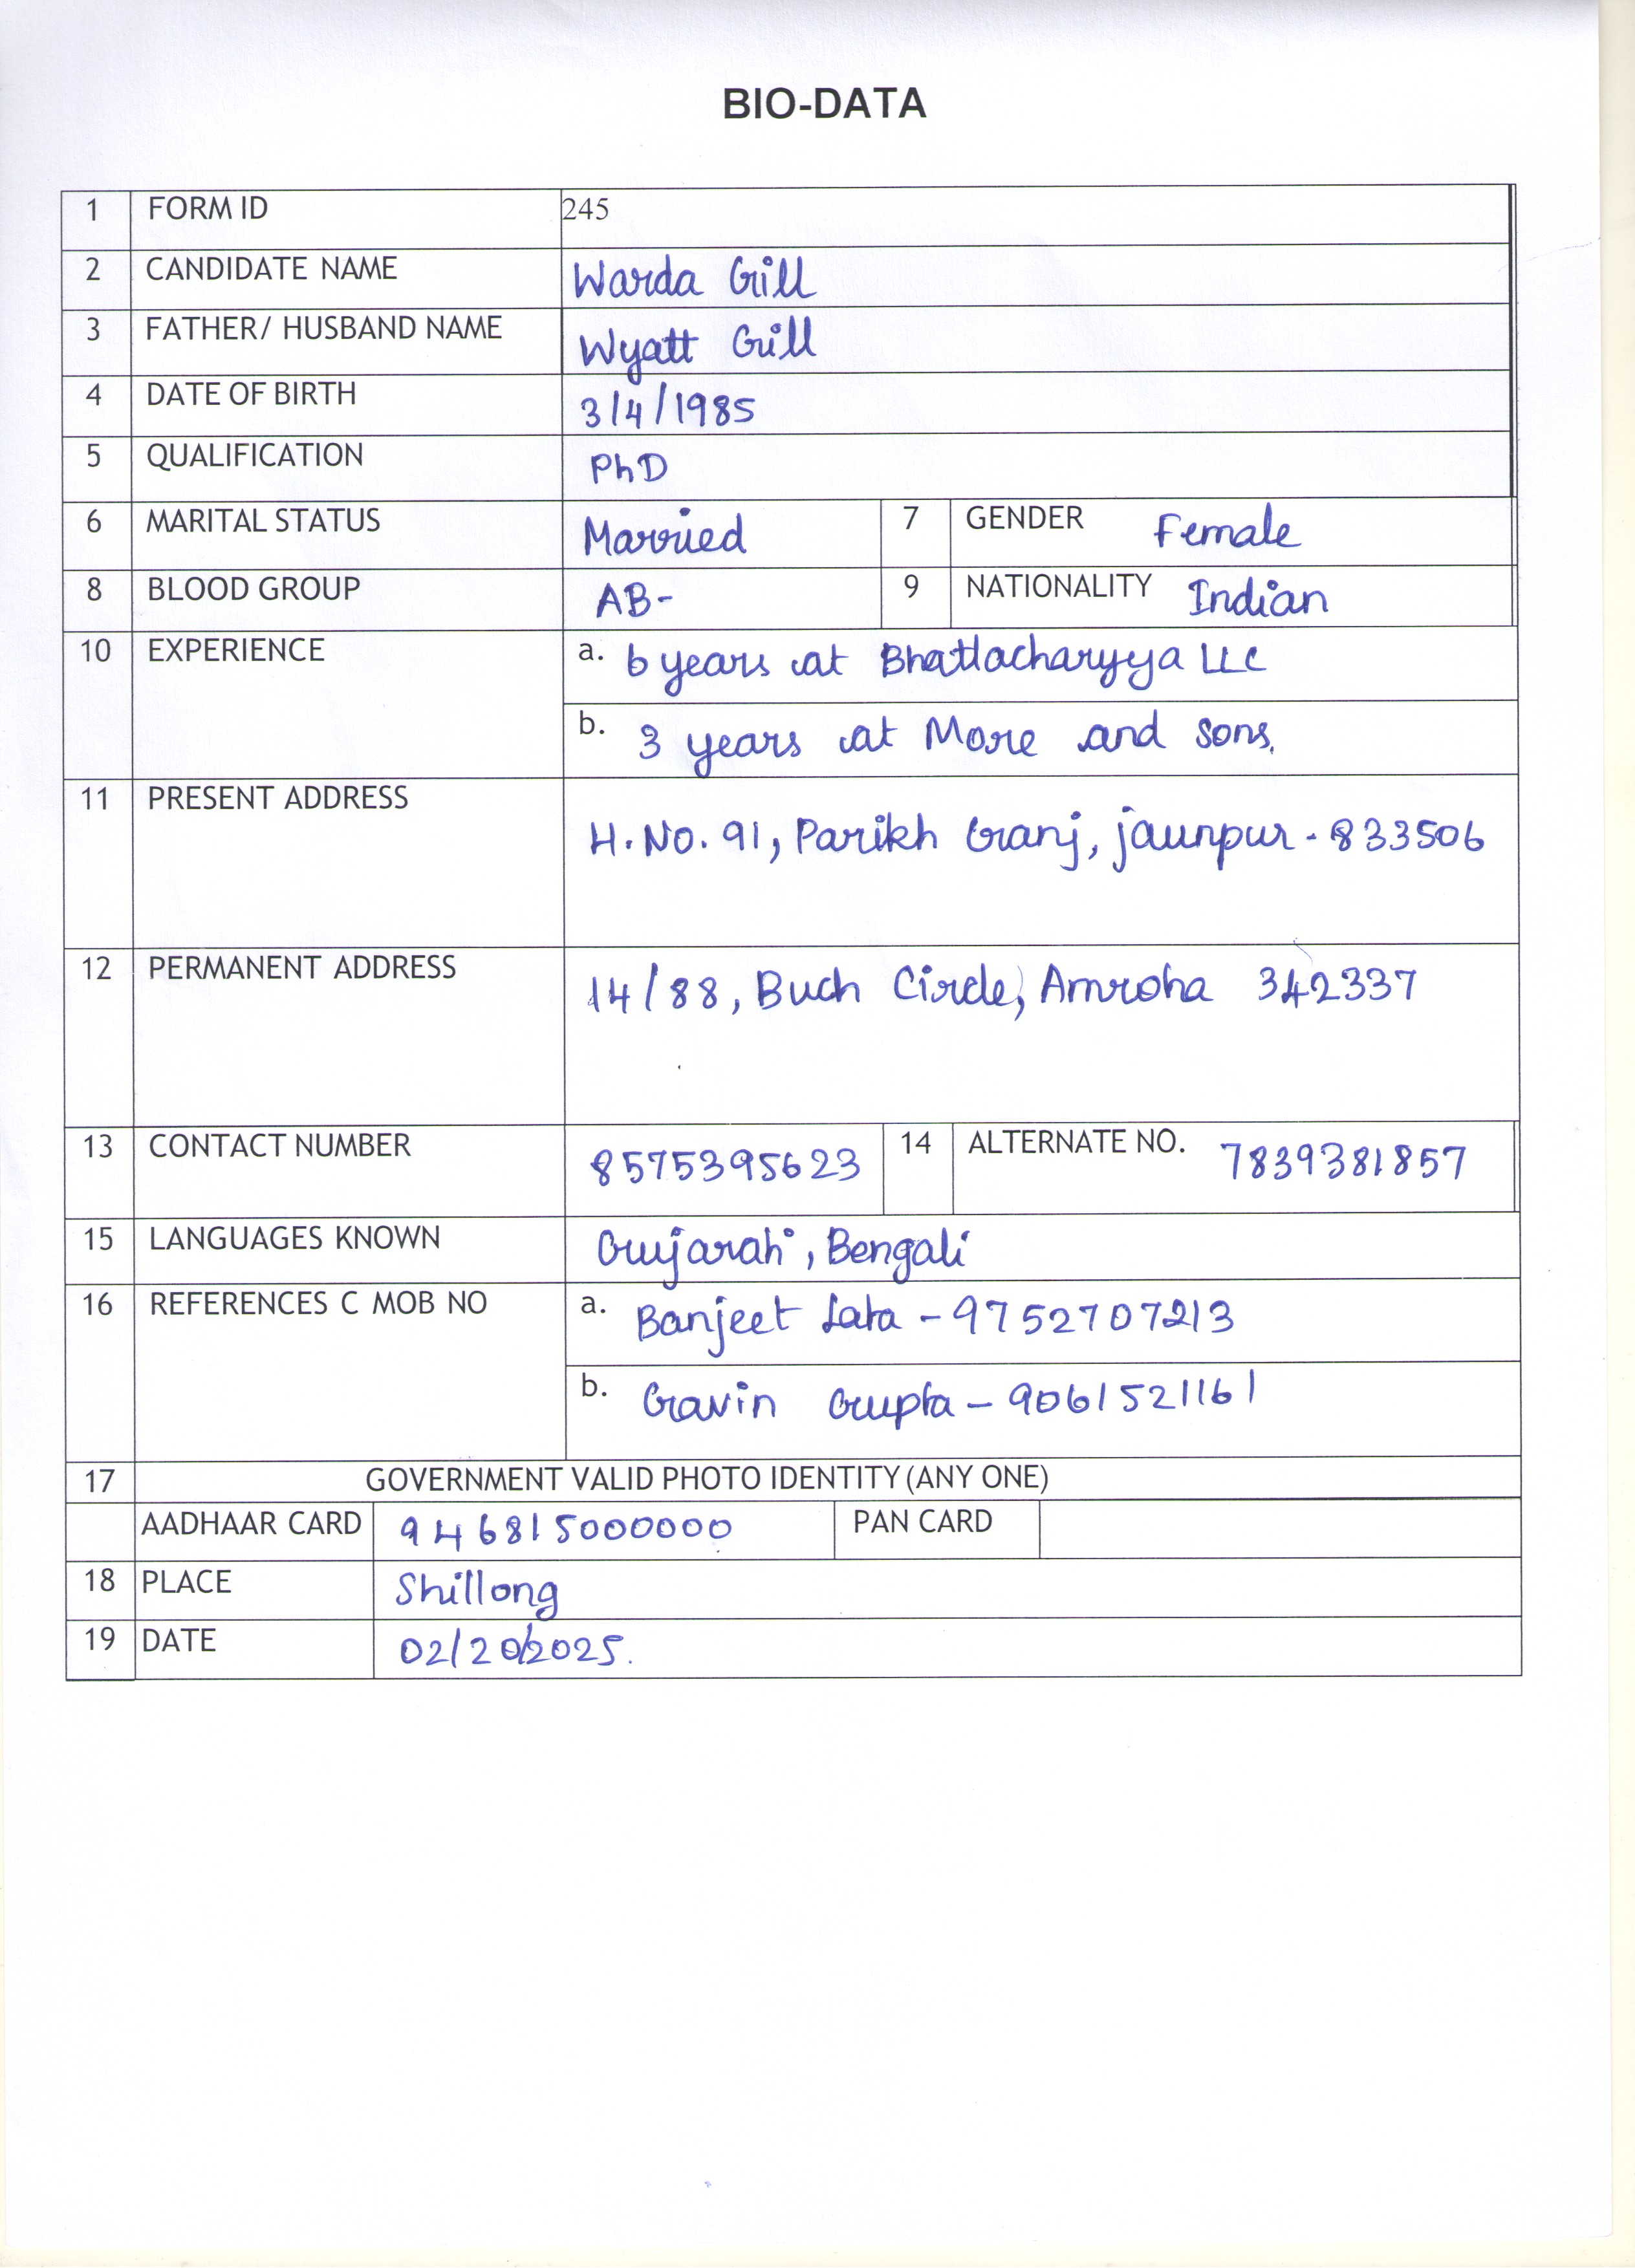 BIO-DATA
1 FORM ID 245
2 CANDIDATE NAME Warda Gill
3 FATHER/ HUSBAND NAME Wyatt Gill
4 DATE OF BIRTH 3/4/1985
5 QUALIFICATION PhD
6 MARITAL STATUS Married 7 GENDER Female
8 BLOOD GROUP AB- 9 NATIONALITY Indian
10 EXPERIENCE a. 6 years at Bhattacharyya LLC
b. 3 years at More and Sons.
11 PRESENT ADDRESS
H.No. 91, Parikh Ganj, jaunpur - 833506
12 PERMANENT ADDRESS 14/88, Buch Circle, Amroha 342337
13 CONTACT NUMBER 8575395623 14 ALTERNATE NO. 7839381857
15 LANGUAGES KNOWN Gujarati, Bengali
16 REFERENCES C MOB NO a. Banjeet Lata - 9752707213
b. Gavin Gupta - 9061521161
17 GOVERNMENT VALID PHOTO IDENTITY (ANY ONE)
AADHAAR CARD 946815000000 PAN CARD
18 PLACE Shillong
19 DATE 02/20/2025.